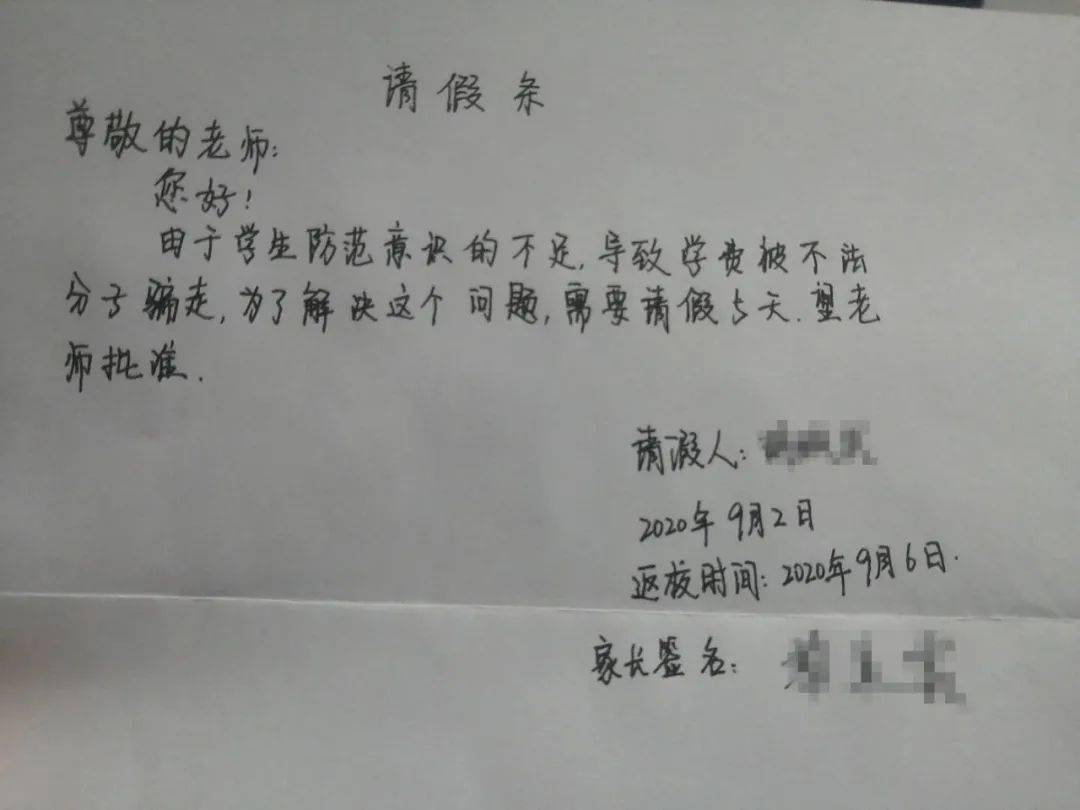 请假条
尊敬的老师:
您好!
由于学生防范意识的不足,导致学费被不法
分子骗走,为了解决这个问题,需要请假5天.望老
师批准.
请假人:
2020年9月2日
返校时间:2020年9月6日.
家长签名: